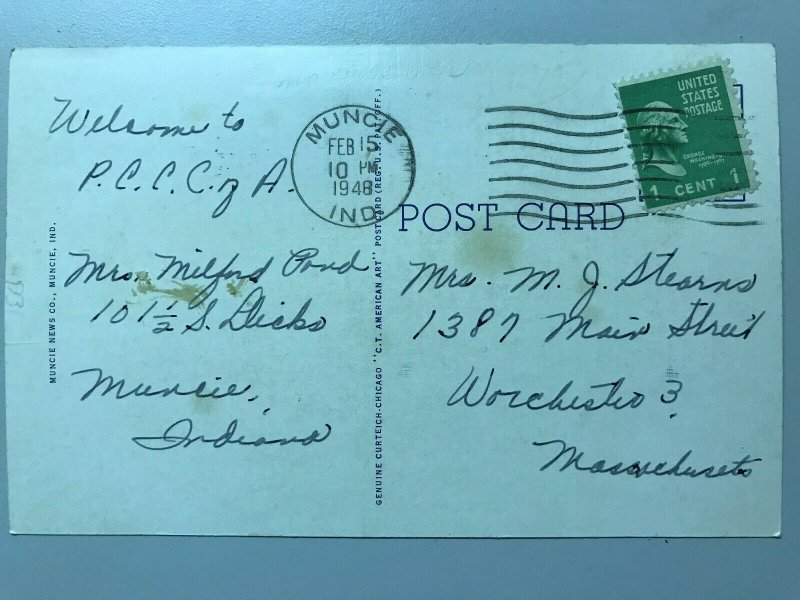 Welcome to
P.C.C.C. of A.
Mrs. Milford Pond
101 1/2 S. Dicks
Muncie,
Indiana
MUNCIE NEWS CO., MUNCIE, IND.
GENUINE CURTEICH-CHICAGO "C.T. AMERICAN ART" POST CARD (REG. U.S. PAT. OFF.)
MUNCIE
FEB 15
10 PM
1948
IND.
UNITED
STATES
POSTAGE
GEORGE
WASHINGTON
1 CENT 1
POST CARD
Mrs. M. J. Stearns
1387 Main Street
Worchester 3.
Massachusets